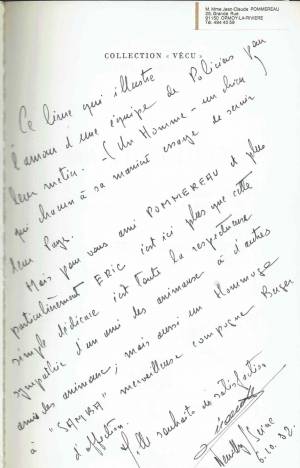 M. Mme Jean-Claude POMMEREAU
25, Grande Rue
91150 ORMOY-LA-RIVIERE
Tél. 494 40 59
COLLECTION « VÉCU »
Ce livre qui illustre
l'amour d'une équipe de Policiers pour
leur métier. - (Un Homme - un chien)
qui chacun à sa manière essaye de servir
leur Pays.
Mais pour vous ami POMMEREAU et plus
particulièrement ERIC c'est ici plus que cette
simple dédicace c'est toute la respectueuse
sympathie d'un ami des animaux à d'autres
amis des animaux, mais aussi un Hommage
à "SAMBA" merveilleuse compagne Berger
d'affection.
Mille souhaits de satisfaction
Neuilly s/ Seine
6.10.82.